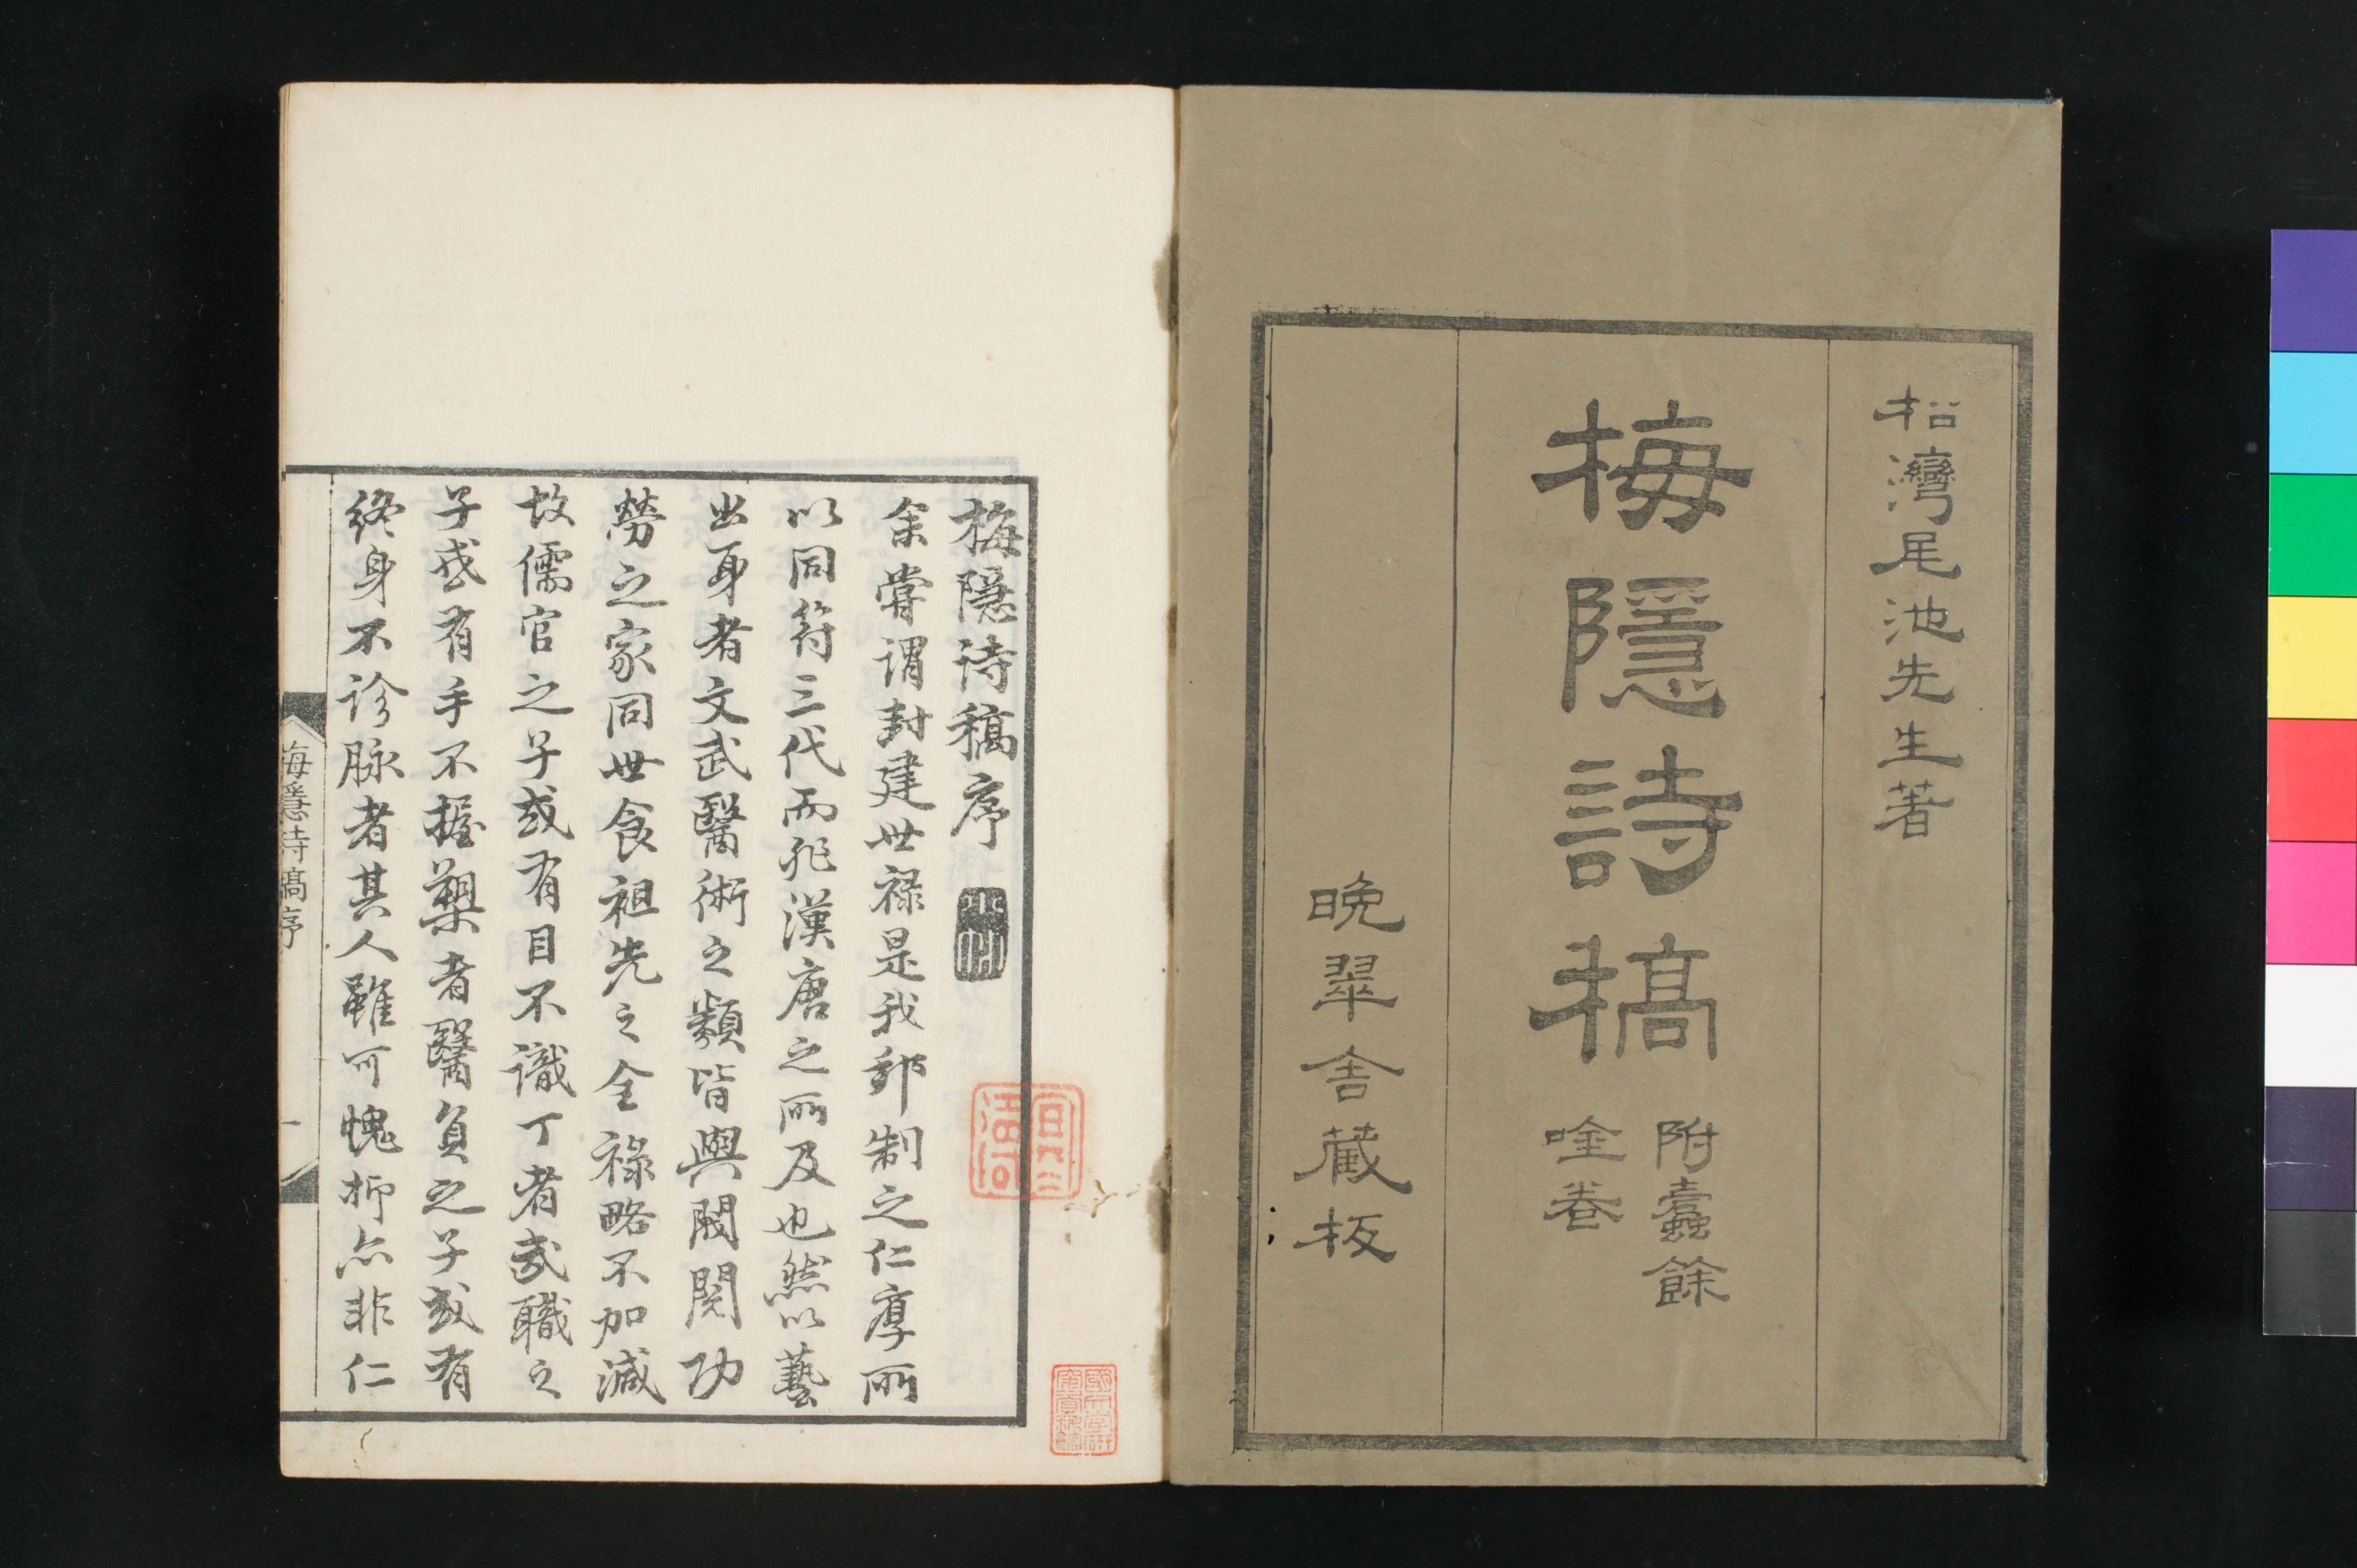 松灣尾池先生著
梅隱詩稿
附蠹餘
唫卷
晩翠舍藏板
梅隱詩稿序
余嘗謂封建世祿是我邦制之仁厚所
以同符三代而非漢唐之所及也然以藝
出身者文武醫術之類皆與閥閱功
勞之家同世食祖先之全祿略不加減
故儒官之子或有目不識丁者武職之
子或有手不握槊者醫員之子或有
終身不診脉者其人雖可愧抑亦非仁
梅隱詩稿序
一